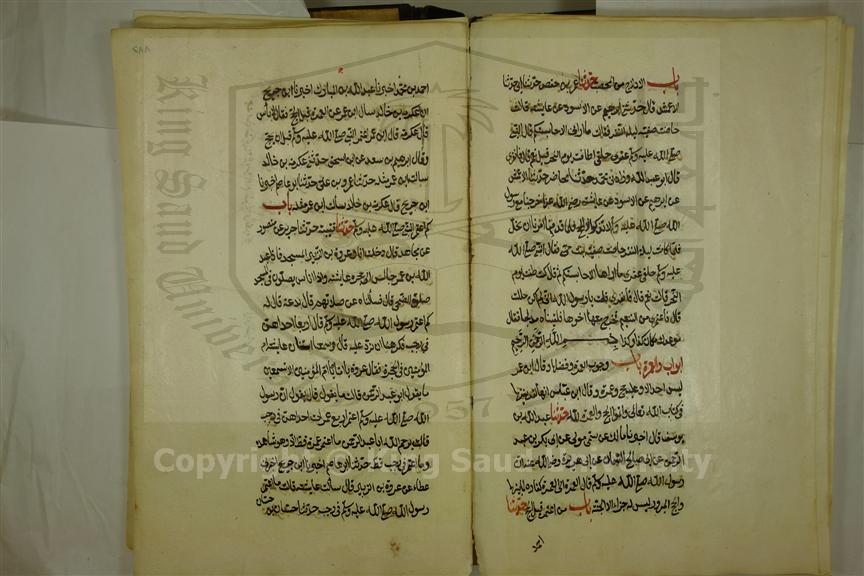 باب الادلاج من المحصب حدثنا عمر بن حفص حدثنا ابي حدثنا
الاعمش قال حدثني ابراهيم عن الاسود عن عايشه قالت
حاضت صفيه ليلة النفر فقالت ما اراني الا حابستكم قال النبي
صلى الله عليه وسلم عقرى حلقى اطافت يوم النحر قيل نعم قال فانفري
قال ابو عبد الله وزادني محمد حدثنا محاضر حدثنا الاعمش
عن ابراهيم عن الاسود عن عايشه رضي الله عنها خرجنا مع رسول
الله صلى الله عليه وسلم لا نذكر الا الحج فلما قدمنا امرنا ان نحل
فلما كانت ليلة النفر حاضت صفيه بنت حيي فقال النبي صلى الله
عليه وسلم حلقى عقرى ما اراها الا حابستكم ثم قال كنت طفت يوم
النحر قالت نعم قال فانفري قلت يا رسول الله اني لم اكن حللت
قال فاعتمري من التنعيم فخرج معها اخوها فلقيناه مدلجا فقال
موعدك مكان كذا وكذا بسم الله الرحمن الرحيم
ابواب العمره باب وجوب العمره وفضلها وقال ابن عمر
ليس احد الا وعليه حج وعمره وقال ابن عباس انها لقرينتها
في كتاب الله تعالى واتموا الحج والعمره لله حدثنا عبد الله بن
يوسف قال اخبرنا مالك عن سمي مولى ابي بكر بن عبد
الرحمن عن ابي صالح السمان عن ابي هريره رضي الله عنه ان
رسول الله صلى الله عليه وسلم قال العمره الى العمره كفاره لما بينهما
والحج المبرور ليس له جزاء الا الجنه باب من اعتمر قبل الحج حدثنا
احمد
احمد بن محمد اخبرنا عبد الله بن المبارك اخبرنا ابن جريج
ان عكرمه بن خالد سال ابن عمر عن العمره قبل الحج فقال لا باس
قال عكرمه قال ابن عمر اعتمر النبي صلى الله عليه وسلم قبل ان يحج
وقال ابراهيم بن سعد عن ابن اسحق حدثني عكرمه بن خالد
سالت ابن عمر مثله حدثنا عمرو بن علي حدثنا ابو عاصم اخبرنا
ابن جريج قال عكرمه بن خالد سالت ابن عمر مثله باب
كم اعتمر النبي صلى الله عليه وسلم حدثنا قتيبه حدثنا جرير عن منصور
عن مجاهد قال دخلت انا وعروة بن الزبير المسجد فاذا عبد
الله بن عمر جالس الى حجرة عايشه واذا اناس يصلون في المسجد
صلاة الضحى قال فسالناه عن صلاتهم فقال بدعة ثم قال له
كم اعتمر رسول الله صلى الله عليه وسلم قال اربعا احداهن
في رجب فكرهنا ان نرد عليه قال وسمعنا استنان عايشه ام
المؤمنين في الحجرة فقال عروة يا اماه يا ام المؤمنين الا تسمعين
ما يقول ابو عبد الرحمن قالت ما يقول قال يقول ان رسول
الله صلى الله عليه وسلم اعتمر اربع عمرات احداهن في رجب
قالت يرحم الله ابا عبد الرحمن ما اعتمر عمرة قط الا وهو شاهده
وما اعتمر في رجب قط حدثنا ابو عاصم اخبرنا ابن جريج اخبرني
عطاء عن عروة بن الزبير قال سالت عايشه قالت ما اعتمر
رسول الله صلى الله عليه وسلم في رجب حدثنا حسان بن
حسان
King Saud University
1957
Copyright © King Saud University